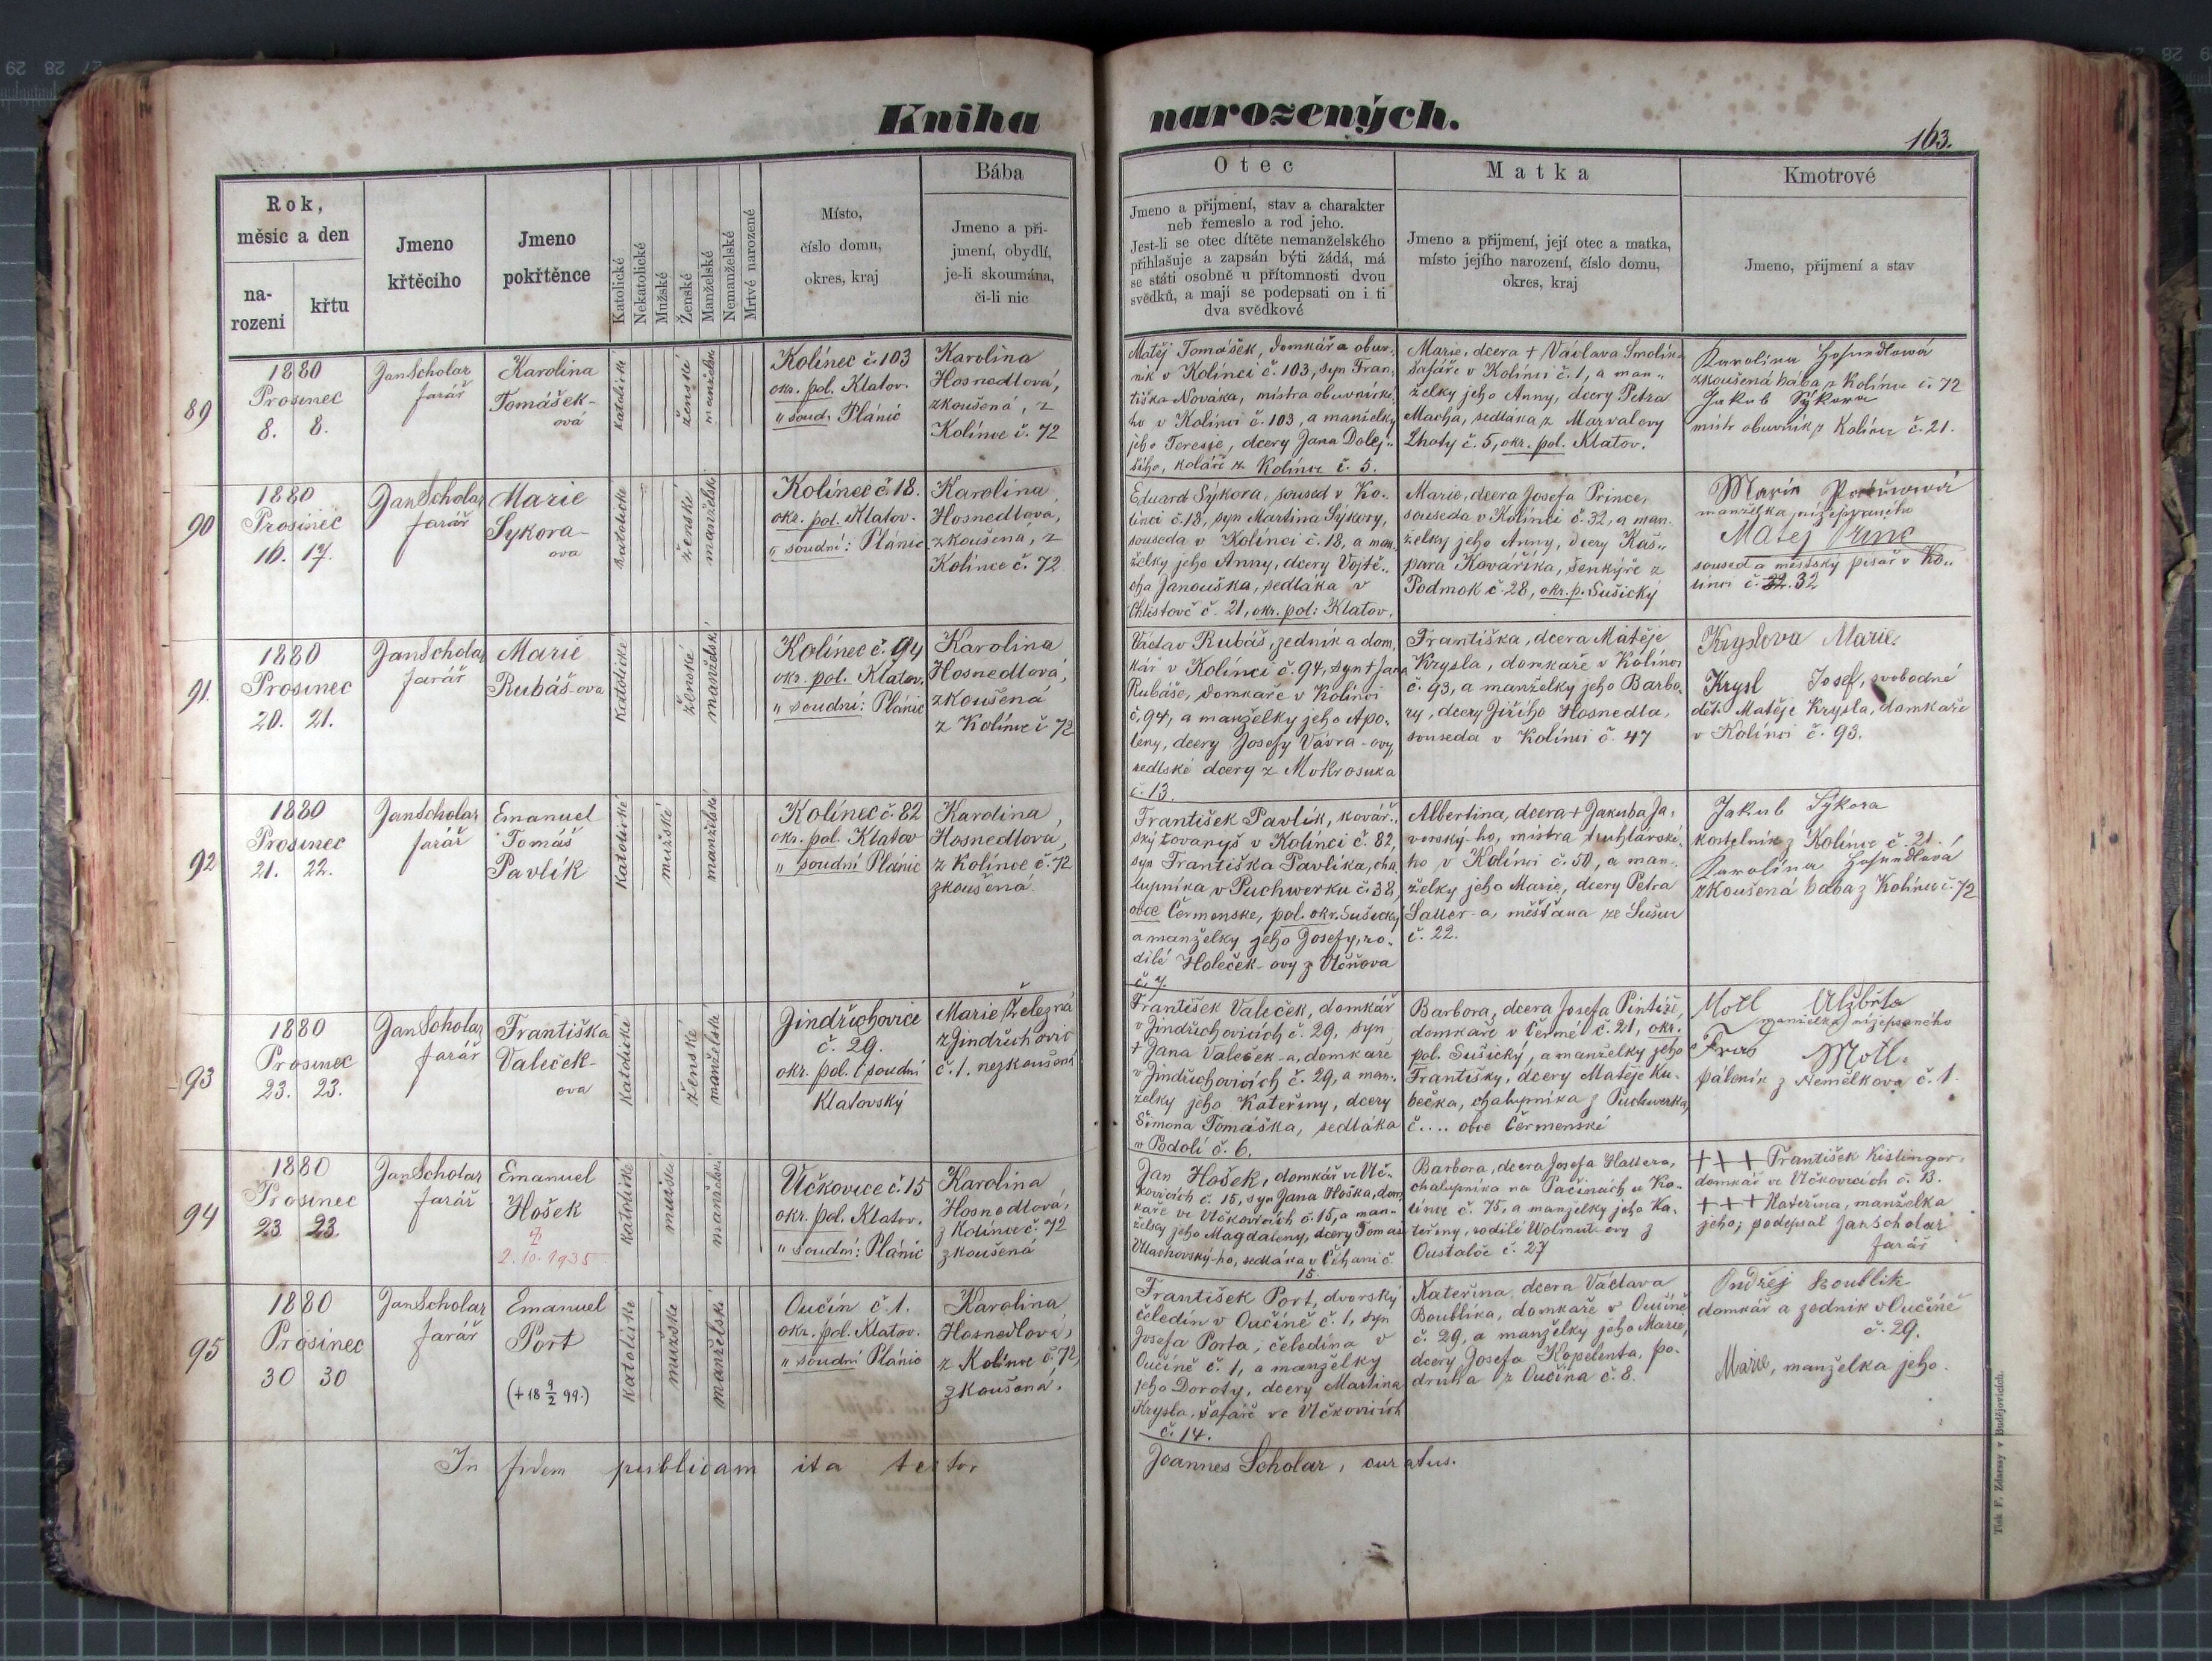 Kniha narozených.
163.
Rok,
měsíc a den
na-
rození
křtu
Jmeno
křtěcího
Jmeno
pokřtěnce
Katolické
Nekatolické
Mužské
Ženské
Manželské
Nemanželské
Mrtvé narozené
Místo,
číslo domu,
okres, kraj
Bába
Jmeno a při-
jmení, obydlí,
je-li skoumána,
či-li nic
Otec
Jmeno a přijmení, stav a charakter
neb řemeslo a rod jeho.
Jest-li se otec dítěte nemanželského
přihlašuje a zapsán býti žádá, má
se státi osobně u přítomnosti dvou
svědků, a mají se podepsati on i ti
dva svědkové
Matka
Jmeno a přijmení, její otec a matka,
místo jejího narození, číslo domu,
okres, kraj
Kmotrové
Jmeno, přijmení a stav
89
1880
Prosinec
8. 8.
Jan Scholar
farář
Karolina
Tomášek-
ová
katolické
ženské
manželské
Kolínec č. 103
okr. pol. Klatov.
" soud. Plánic
Karolina
Hosnedlová,
zkoušená, z
Kolínce č. 72
Matěj Tomášek, domkář a obuv-
ník v Kolínci č. 103, syn Fran-
tiška Nováka, mistra obuvnické-
ho v Kolínci č. 103, a manželky
jeho Terezie, dcery Jana Dolej-
šího, koláře z Kolínce č. 5.
Marie, dcera + Václava Smolík
šafáře v Kolínci č. 1, a man-
želky jeho Anny, dcery Petra
Macha, sedláka z Marvalovy
Lhoty č. 5, okr. pol. Klatov.
Karolina Hosnedlowá
zkoušená bába z Kolínce č. 72
Jakub Sýkora
mistr obuvník z Kolínce č. 21.
90
1880
Prosinec
16. 17.
Jan Scholar
farář
Marie
Sykora-
ova
katolické
ženské
manželské
Kolínec č. 18.
okr. pol. Klatov.
" soudní: Plánic
Karolina
Hosnedlova,
zkoušená, z
Kolínce č. 72
Eduard Sýkora, soused v Ko-
línci č. 18, syn Martina Sýkory,
souseda v Kolínci č. 18, a man-
želky jeho Anny, dcery Vojtě-
cha Janouška, sedláka v
Chlistově č. 21, okr. pol: Klatov.
Marie, dcera Josefa Prince,
souseda v Kolínci č. 32, a man-
želky jeho Anny, dcery Kaš-
para Kovaříka, šenkýře z
Podmok č. 28, okr. p. Sušický
Marie
manželka nížepsaného
Matěj Princ
soused a městský písař v Ko-
línci č. 32
91.
1880
Prosinec
20. 21.
Jan Scholar
farář
Marie
Rubáš-ova
katolické
ženské
manželské
Kolínec č. 94
okr. pol. Klatov.
" soudní: Plánic
Karolina
Hosnedlová,
zkoušená
z Kolínce č. 72
Václav Rubáš, zedník a dom-
kář v Kolínci č. 94, syn + Jana
Rubáše, domkáře v Kolínci
č. 94, a manželky jeho Apo-
leny, dcery Josefy Vávra-ovy
sedlské dcery z Mokrosuka
č. 13.
Františka, dcera Matěje
Krysla, domkáře v Kolínci
č. 93, a manželky jeho Barbo-
ry, dcery Jiřího Hosnedla,
souseda v Kolínci č. 47
Kryslova Marie.
Krysl Josef, svobodné
děti Matěje Krysla, domkáře
v Kolínci č. 93.
92
1880
Prosinec
21. 22.
Jan Scholar
farář
Emanuel
Tomáš
Pavlík
katolické
mužské
manželské
Kolínec č. 82
okr. pol. Klatov
" soudní Plánic
Karolina
Hosnedlova,
z Kolínce č. 72
zkoušená.
František Pavlík, kovář-
ský tovaryš v Kolínci č. 82,
syn Františka Pavlíka, cha-
lupníka v Puchwerku č. 38,
obce Čermenské, pol. okr. Sušický
a manželky jeho Josefy, ro-
dilé Holeček-ovy z Utěňova
č. 7.
Albertina, dcera + Jakuba Ja-
vorský-ho, mistra truhlářské-
ho v Kolínci č. 50, a man-
želky jeho Marie, dcery Petra
Saller-a, měšťana ze Sušice
č. 22.
Jakub Sýkora
kostelník z Kolínce č. 21.
Karolína Hosnedlová
zkoušená baba z Kolínce č. 72
93
1880
Prosinec
23. 23.
Jan Scholar
farář
Františka
Valeček-
ova
katolické
ženské
manželské
Jindřichovice
č. 29.
okr. pol. i soudní
Klatovský
Marie Železná
z Jindřichovic
č. 1. nezkoušená
František Valeček, domkář
v Jindřichovicích č. 29, syn
+ Jana Valeček-a, domkáře
v Jindřichovicích č. 29, a man-
želky jeho Kateřiny, dcery
Šimona Tomáška, sedláka
v Podolí č. 6.
Barbora, dcera Josefa Pintíře,
domkáře v Čermé č. 21, okr.
pol. Sušický, a manželky jeho
Františky, dcery Matěje Ku-
bečka, chalupníka z Puchwerka,
č.... obce Čermenské
Motl Alžběta
manželka nížepsaného
Fraz Motl.
páleník z Nemělkova č. 1.
94
1880
Prosinec
23 23.
Jan Scholar
farář
Emanuel
Hošek
2. 10. 1935
katolické
mužské
manželské
Účkovice č. 15
okr. pol. Klatov.
" soudní: Plánic
Karolina
Hosnedlová,
z Kolínce č. 72
zkoušená
Jan Hošek, domkář ve Uč-
kovicích č. 15, syn Jana Hoška, dom-
káře ve Učkovicích č. 15, a man-
želky jeho Magdaleny, dcery Tomáš
Vlachovský-ho, sedláka v Číhani č.
15.
Barbora, dcera Josefa Hallera,
chalupníka na Pačinách u Ko-
línce č. 75, a manželky jeho Ka-
teřiny, rodilé Wolmut-ovy z
Oustaloče č. 27
+++ František Kislinger,
domkář ve Učkovicích č. 13.
+++ Kateřina, manželka
jeho; podepsal Jan Scholar
farář
95
1880
Prosinec
30 30
Jan Scholar
farář
Emanuel
Port
(+ 18 9/2 99.)
katolické
mužské
manželské
Oučín č. 1.
okr. pol. Klatov.
" soudní Plánic
Karolina
Hosnedlová,
z Kolínce č. 72,
zkoušená.
František Port, dvorský
čeledín v Oučíně č. 1, syn
Josefa Porta, čeledína v
Oučíně č. 1, a manželky
jeho Doroty, dcery Martina
Krysla, šafáře ve Učkovicích
č. 14.
Kateřina, dcera Václava
Boublíka, domkáře v Oučíně
č. 29, a manželky jeho Marie,
dcery Josefa Kopelenta, po-
druha z Oučína č. 8.
Ondřej Boublík
domkář a zedník v Oučíně
č. 29.
Marie, manželka jeho.
In fidem publicam ita testor
Joannes Scholar, curatus.
Tisk F. Zdarssy v Budějovicích.